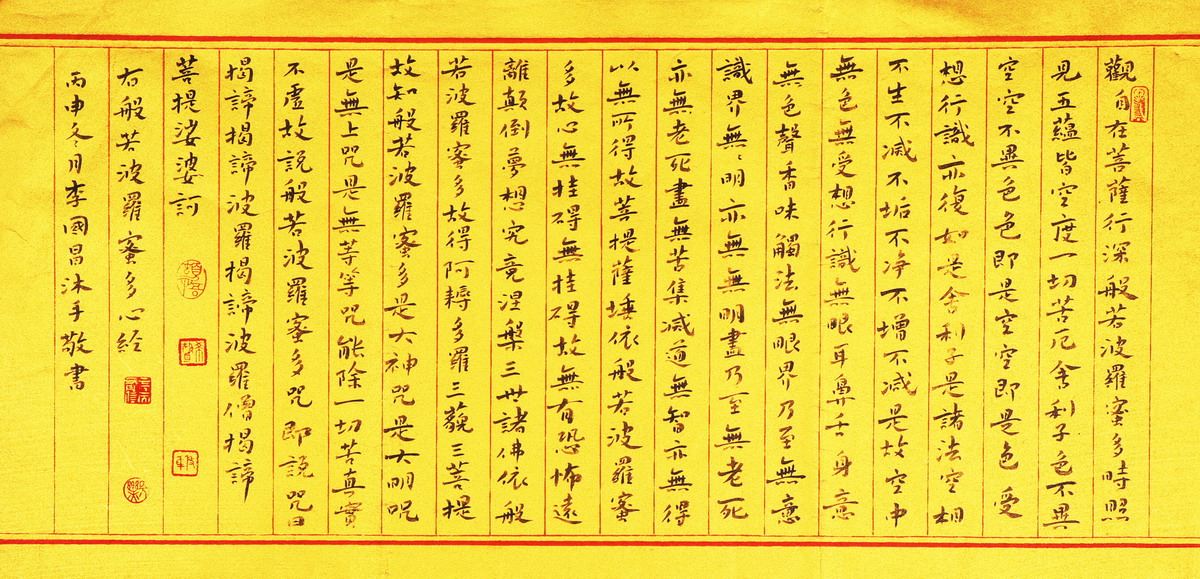 觀自在菩薩行深般若波羅蜜多時照
見五蘊皆空度一切苦厄舍利子色不異
空空不異色色即是空空即是色受
想行識亦復如是舍利子是諸法空相
不生不减不垢不净不增不减是故空中
無色無受想行識無眼耳鼻舌身意
無色聲香味觸法無眼界乃至無意
識界無、明亦無無明盡乃至無老死
亦無老死盡無苦集减道無智亦無得
以無所得故菩提薩埵依般若波羅蜜
多故心無挂碍無挂碍故無有恐怖遠
離顛倒夢想究竟涅槃三世諸佛依般
若波羅蜜多故得阿耨多羅三藐三菩提
故知般若波羅蜜多是大神咒是大明咒
是無上咒是無等等咒能除一切苦真實
不虛故說般若波羅蜜多咒即說咒曰
揭諦揭諦波羅揭諦波羅僧揭諦
菩提娑婆訶
右般若波羅蜜多心經
丙申冬月李國昌沐手敬書